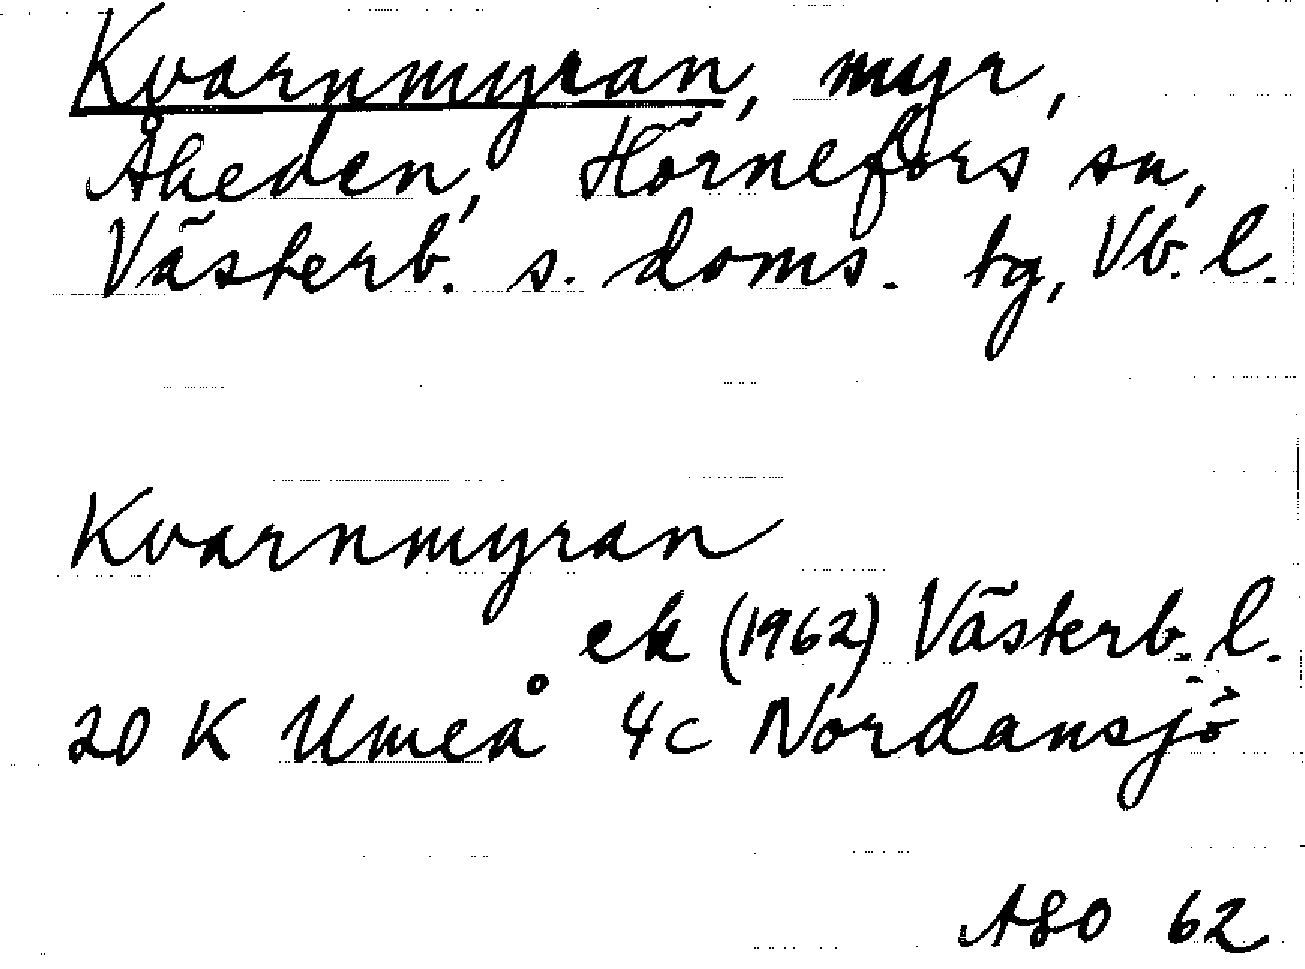 Kvarnmyran, myr,
Åheden, Hörnefors sn,
Västerb. s. doms. tg, Vb. l.
Kvarnmyran
ek (1962) Västerb. l.
20 K Umeå 4c Nordansjö
ASO 62